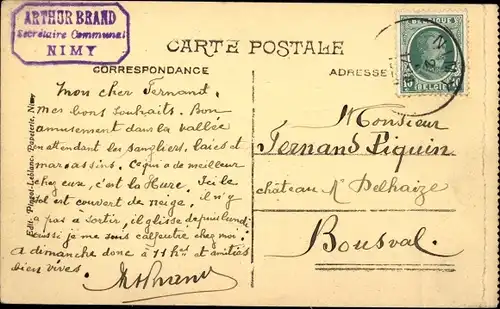 ARTHUR BRAND
Secrétaire Communal
NIMY
CARTE POSTALE
CORRESPONDANCE
ADRESSE
BELGIQUE
BELGIE
Mon cher Fernand,
mes bons souhaits. Bon
amusement dans la vallée
en attendant les sangliers, laies et
marcassins. Ce qu'il y a de meilleur
chez eux, c'est la Hure. Ici le
sol est couvert de neige, il n'y
pas à sortir, il glisse depuis lundi
aussi je me suis calfeutré chez moi.
A dimanche donc à 11 hes et amitiés
bien vives.
Edit. Piérart-Leblanc, Papeterie, Nimy
Monsieur
Fernand Piquin
château Mr Delhaize
Bousval.